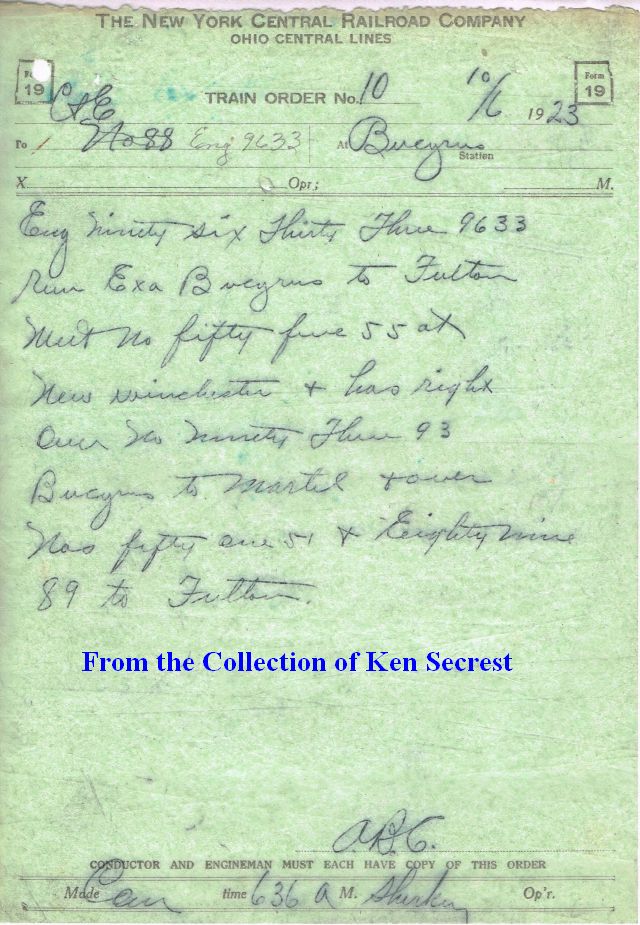 THE NEW YORK CENTRAL RAILROAD COMPANY
OHIO CENTRAL LINES
Form 19
Form 19
TRAIN ORDER No. 10 10/6 1923
C&E
To No 88 Eng 9633 At Bucyrus Station
X Opr; M.
Eng Ninety six Thirty Three 9633
Run Exa Bucyrus to Fulton
Meet No fifty five 55 at
New winchester & has right
Over No Ninety Three 93
Bucyrus to Martel & over
Nos fifty one 51 & Eighty nine
89 to Fulton.
From the Collection of Ken Secrest
CONDUCTOR AND ENGINEMAN MUST EACH HAVE COPY OF THIS ORDER
Made Com time 636 A M. Op'r.